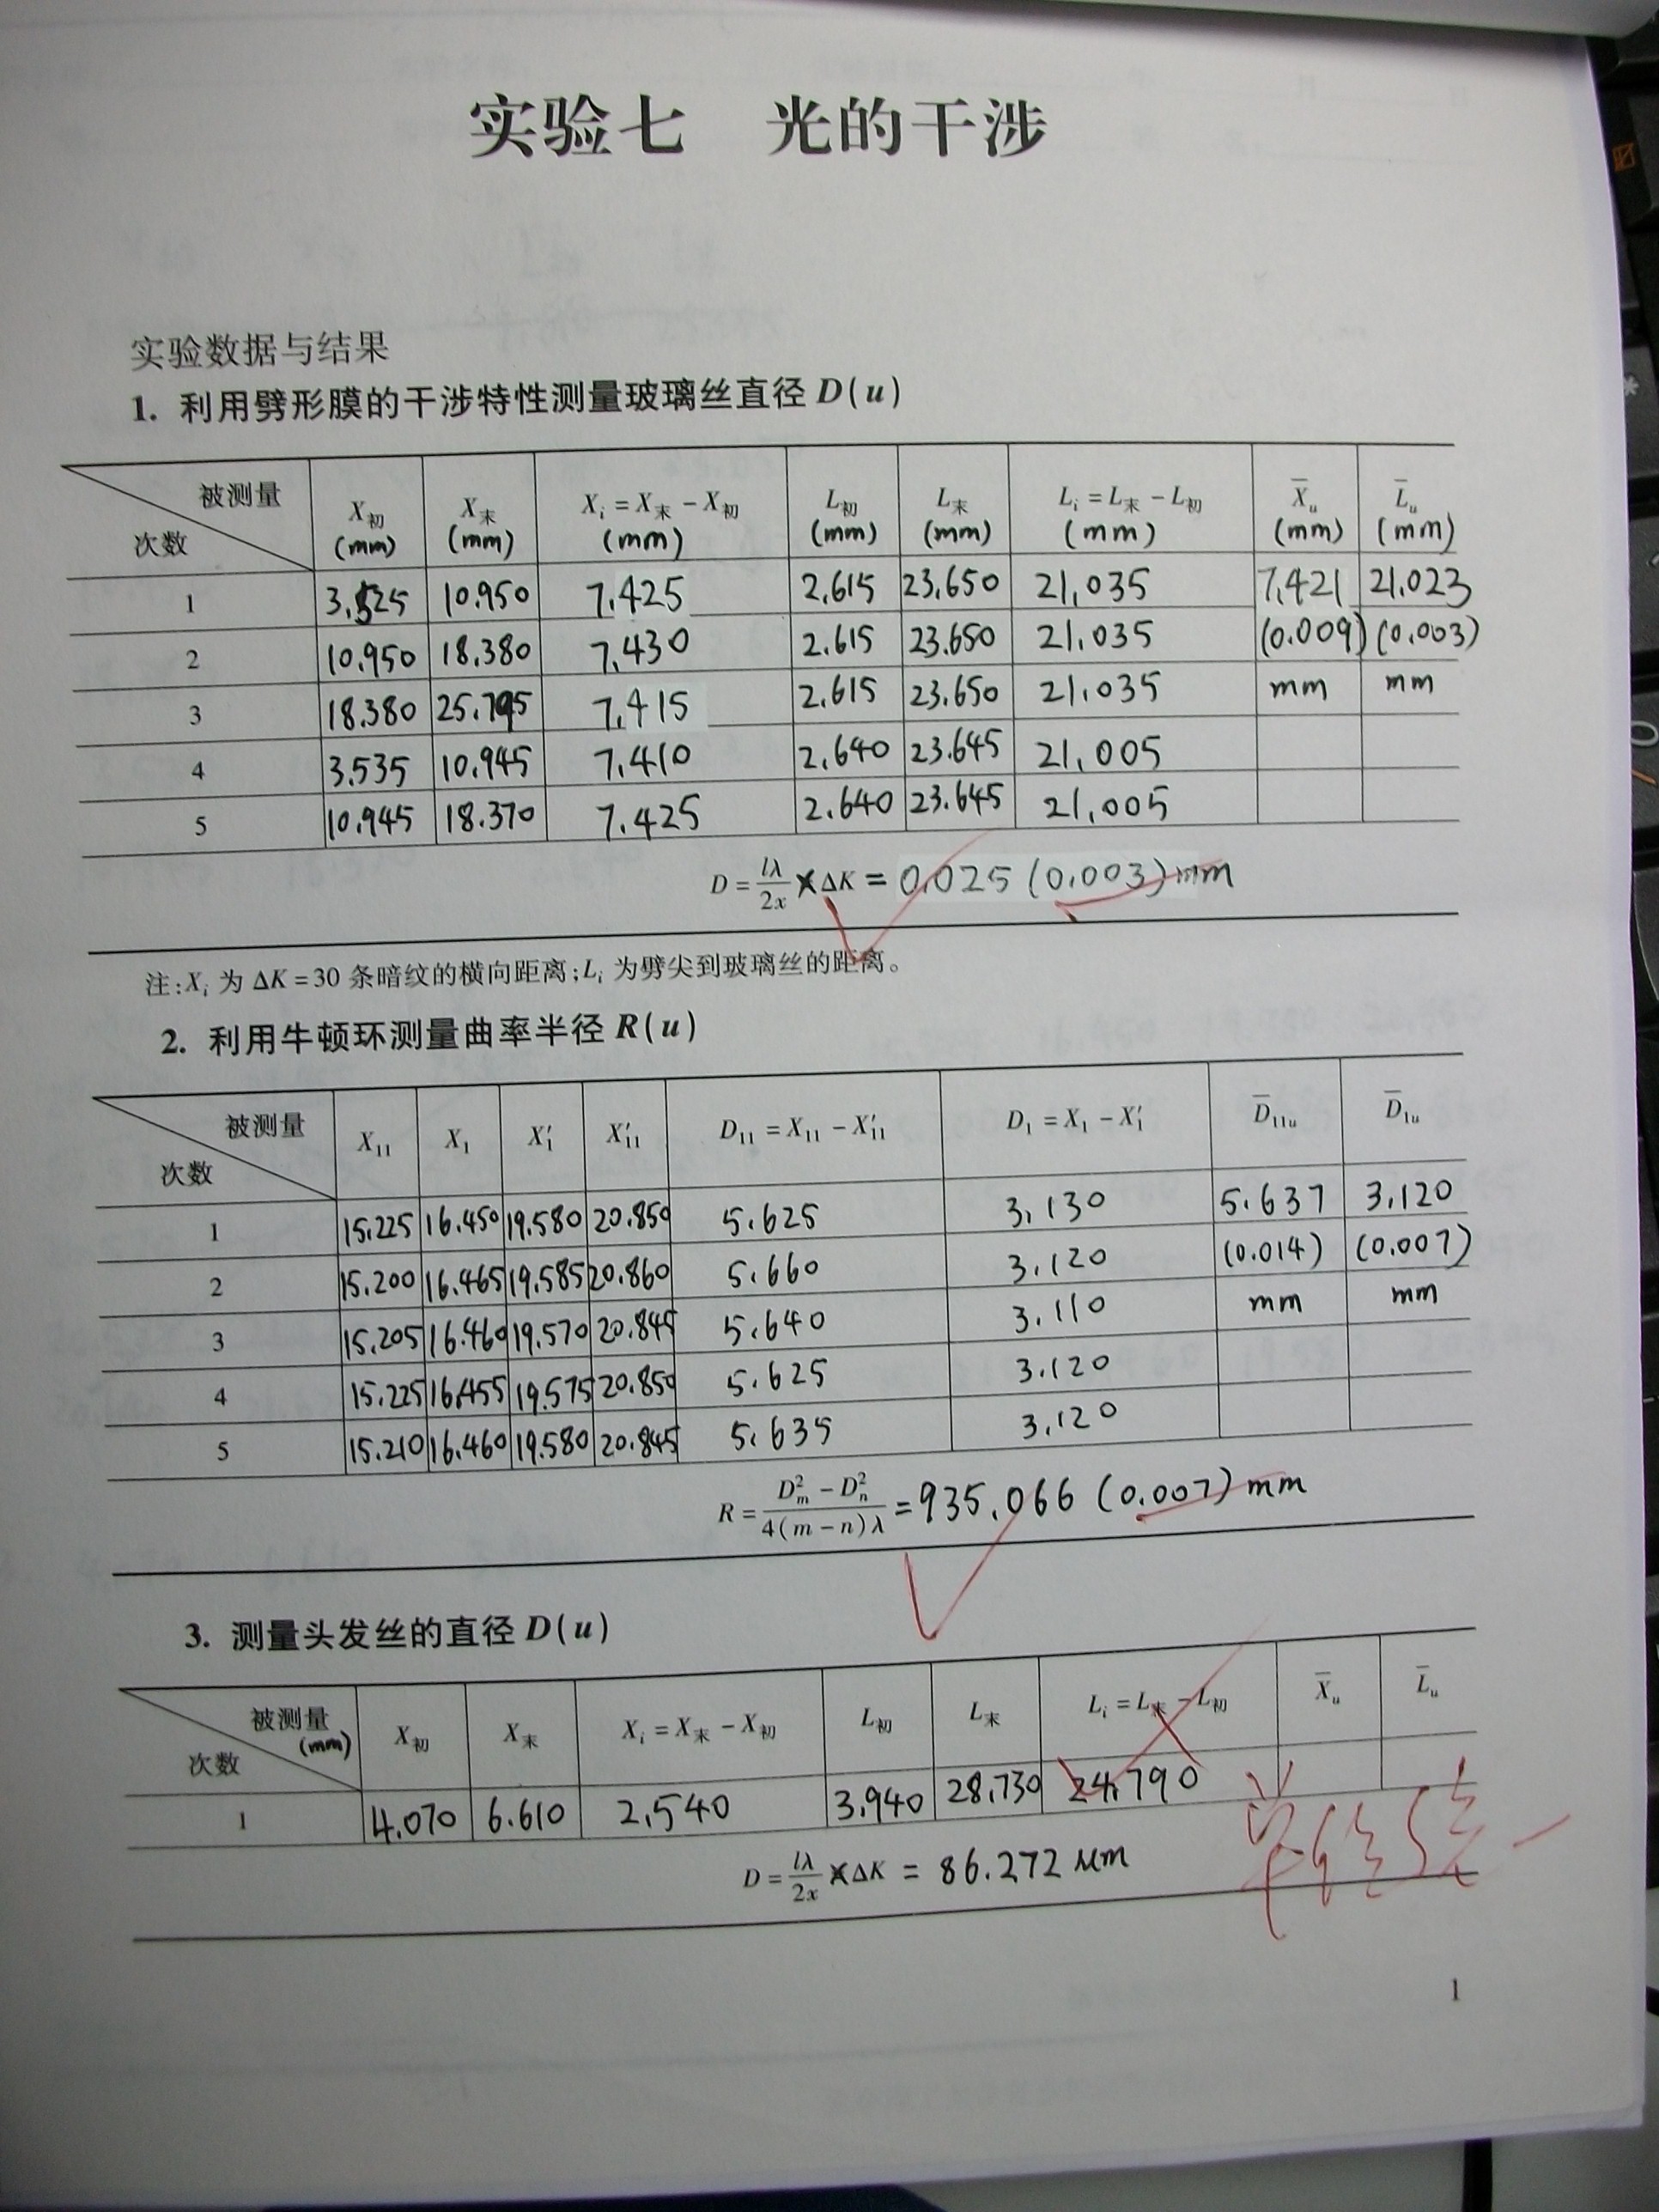 实验七 光的干涉
实验数据与结果
1. 利用劈形膜的干涉特性测量玻璃丝直径 D(u)
被测量 次数 X初 (mm) X末 (mm) Xi = X末 − X初 (mm) L初 (mm) L末 (mm) Li = L末 − L初 (mm) X̄u (mm) L̄u (mm)
1 3.525 10.950 7.425 2.615 23.650 21.035 7.421 21.023
2 10.950 18.380 7.430 2.615 23.650 21.035 (0.009) (0.003)
3 18.380 25.795 7.415 2.615 23.650 21.035 mm mm
4 3.535 10.945 7.410 2.640 23.645 21.005
5 10.945 18.370 7.425 2.640 23.645 21.005
D = lλ/2x × ΔK = 0.025 (0.003) mm
注:Xi 为 ΔK = 30 条暗纹的横向距离;Li 为劈尖到玻璃丝的距离。
2. 利用牛顿环测量曲率半径 R(u)
被测量 次数 X11 X1 X′1 X′11 D11 = X11 − X′11 D1 = X1 − X′1 D̄11u D̄1u
1 15.225 16.450 19.580 20.850 5.625 3.130 5.637 3.120
2 15.200 16.465 19.585 20.860 5.660 3.120 (0.014) (0.007)
3 15.205 16.460 19.570 20.845 5.640 3.110 mm mm
4 15.225 16.455 19.575 20.850 5.625 3.120
5 15.210 16.460 19.580 20.845 5.635 3.120
R = (D²m − D²n)/4(m − n)λ = 935.066 (0.007) mm
3. 测量头发丝的直径 D(u)
被测量 (mm) 次数 X初 X末 Xi = X末 − X初 L初 L末 Li = L末 − L初 X̄u L̄u
1 4.070 6.610 2.540 3.940 28.730 24.790
D = lλ/2x × ΔK = 86.272 μm
1